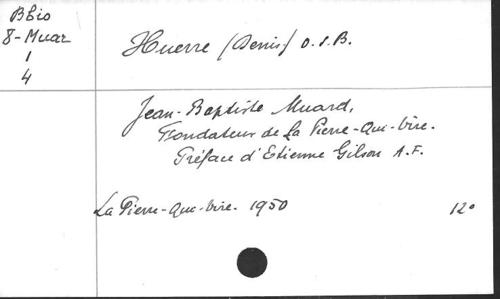 BBio
8-Muar
1
4
Huerre (Denis) O.S.B.
Jean-Baptiste Muard,
Fondateur de La Pierre-Qui-Vire.
Préface d'Etienne Gilson A.F.
La Pierre-Qui-Vire. 1950 12°